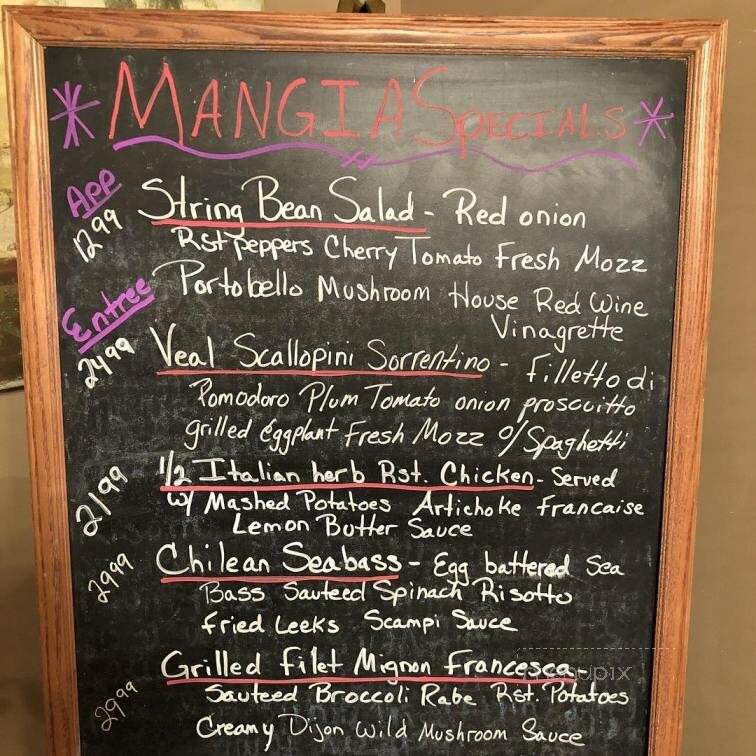 * MANGIA SPECIALS *
App
12 99
String Bean Salad - Red onion
Rst peppers Cherry Tomato Fresh Mozz
Portobello Mushroom House Red Wine
Vinagrette
Entree
24 99
Veal Scallopini Sorrentino - Filletto di
Pomodoro Plum Tomato onion proscuitto
grilled Eggplant Fresh Mozz o/ Spaghetti
21 99
1/2 Italian herb Rst. Chicken - Served
w/ Mashed Potatoes Artichoke Francaise
Lemon Butter Sauce
29 99
Chilean Seabass - Egg battered Sea
Bass Sauteed Spinach Risotto
Fried Leeks Scampi Sauce
29 99
Grilled Filet Mignon Francesca -
Sauteed Broccoli Rabe Rst. Potatoes
Creamy Dijon Wild Mushroom Sauce